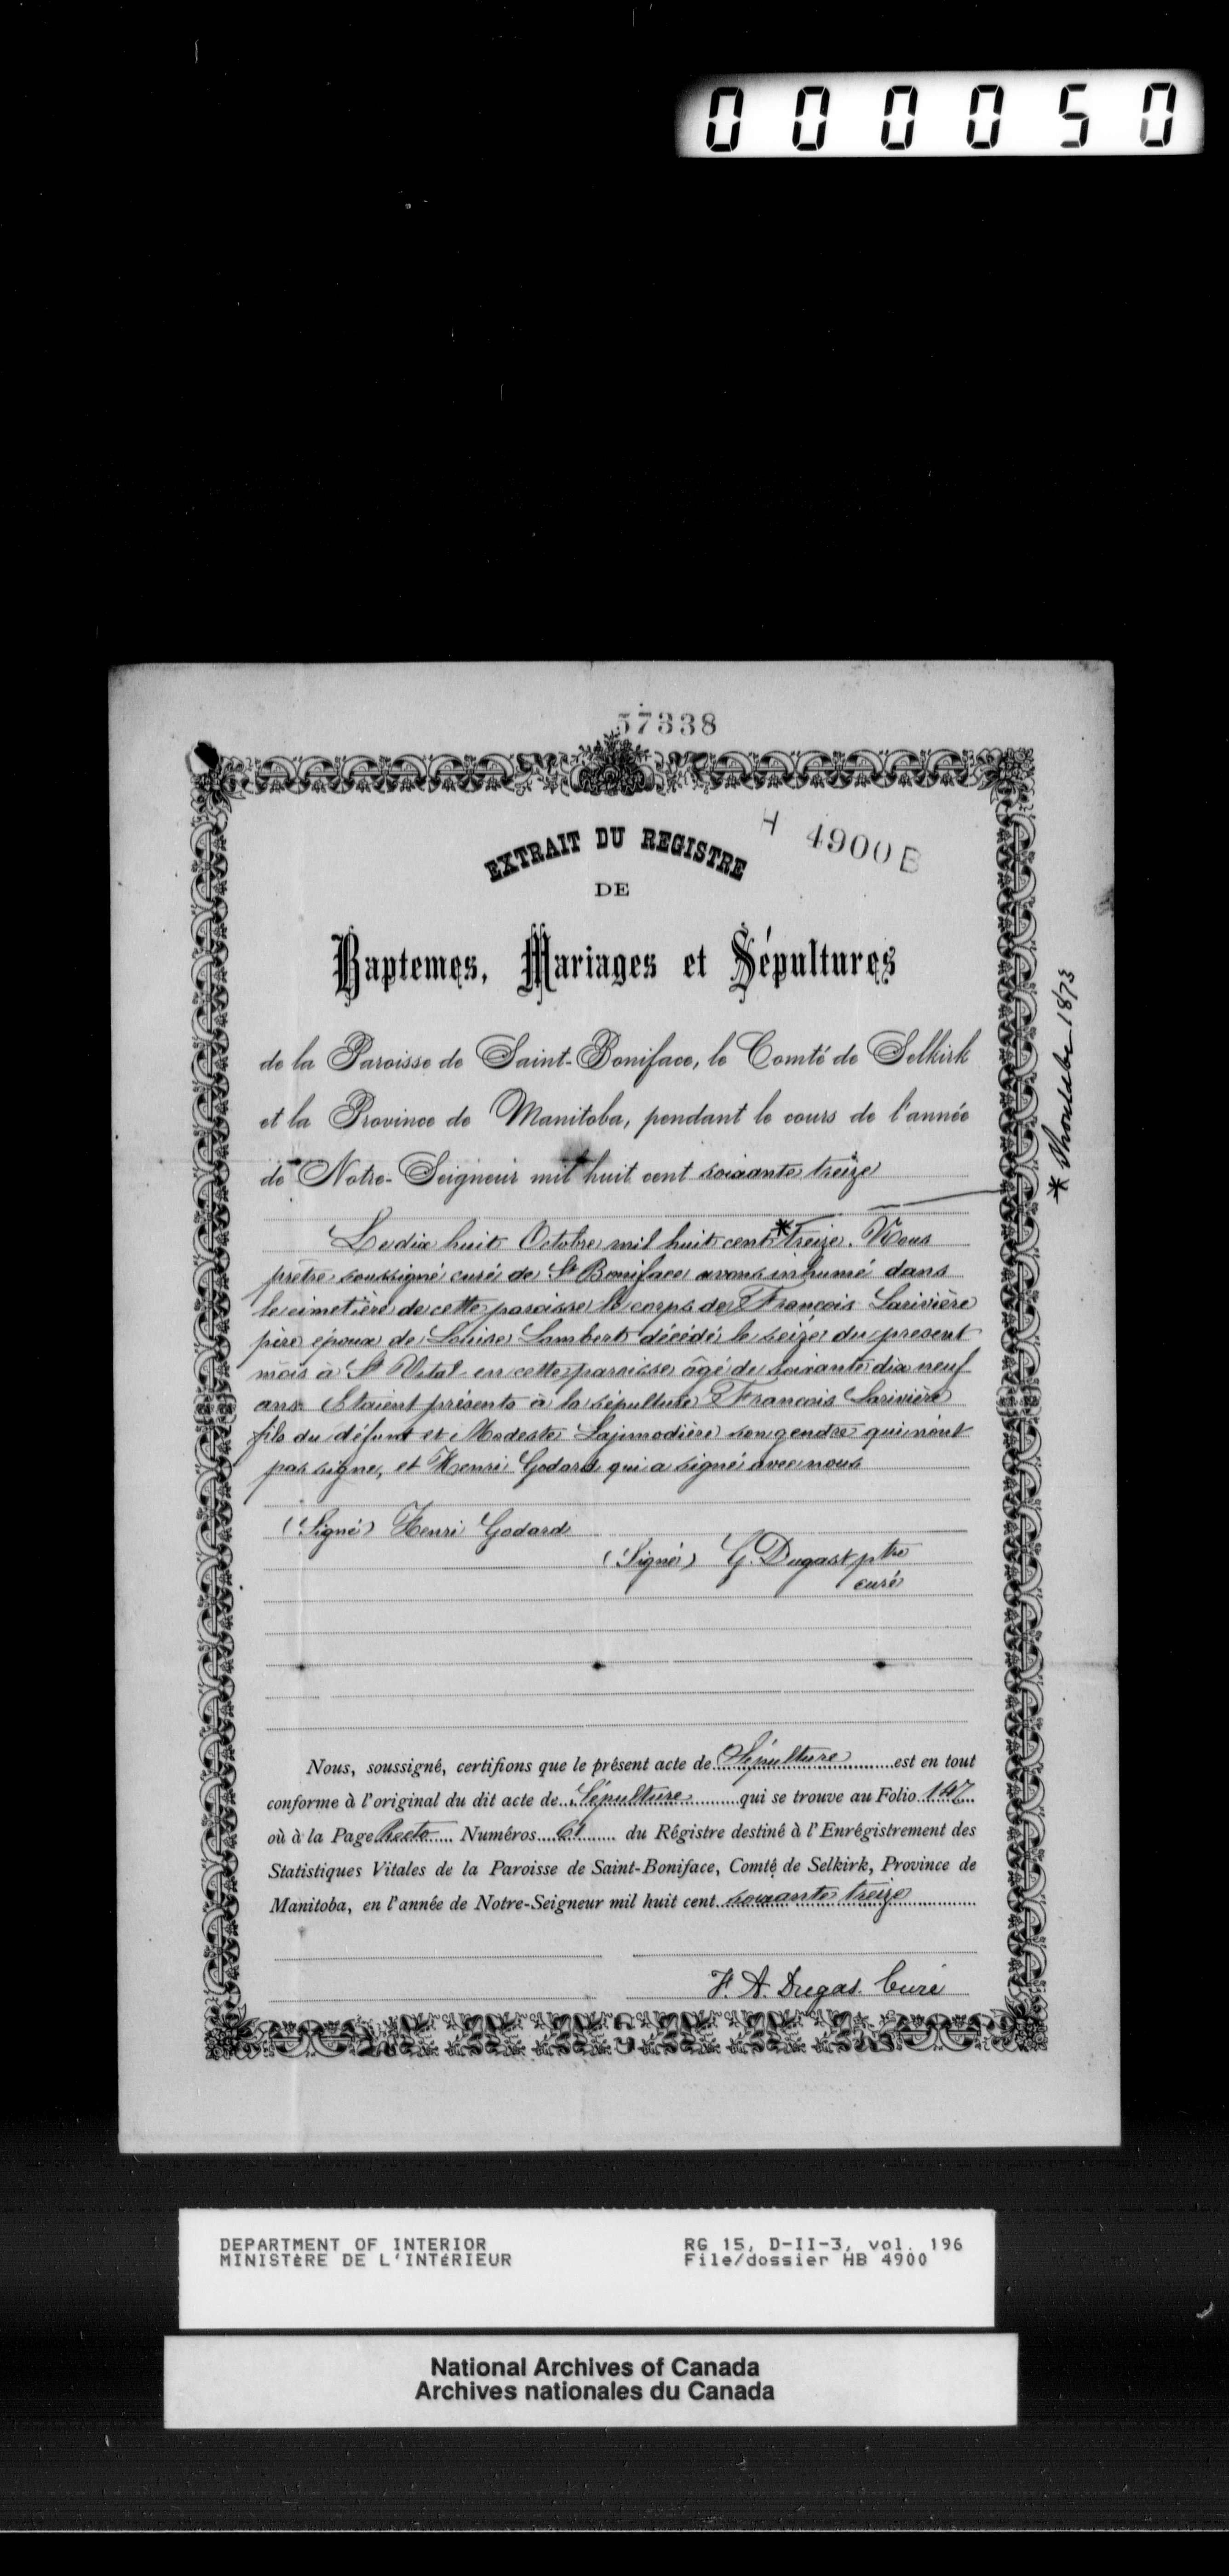 000050
57338
H 4900 B
EXTRAIT DU REGISTRE
DE
Baptemes, Mariages et Sépultures
de la Paroisse de Saint-Boniface, le Comté de Selkirk
et la Province de Manitoba, pendant le cours de l'année
de Notre-Seigneur mil huit cent soixante treize
Le dix huit Octobre mil huit cent * treize. Nous
prêtre soussigné curé de St Boniface avons inhumé dans
le cimetière de cette paroisse le corps de François Larivière
père époux de Louise Lambert décédé le seize du present
mois à St Vital en cette paroisse âgé de soixante dix neuf
ans. Etaient présents à la sépulture François Larivière
fils du défunt et Modeste Lajimodière son gendre qui n'ont
pas signé, et Henri Godard qui a signé avec nous
(Signé) Henri Godard
(Signé) G. Dugast ptre
curé
* Should be 1873
Nous, soussigné, certifions que le présent acte de Sépulture est en tout
conforme à l'original du dit acte de Sépulture qui se trouve au Folio 147
où à la Page Recto Numéros 61 du Régistre destiné à l'Enrégistrement des
Statistiques Vitales de la Paroisse de Saint-Boniface, Comté de Selkirk, Province de
Manitoba, en l'année de Notre-Seigneur mil huit cent soixante treize
F. A. Dugas. Curé
DEPARTMENT OF INTERIOR
MINISTÈRE DE L'INTÉRIEUR
RG 15, D-II-3, vol. 196
File/dossier HB 4900
National Archives of Canada
Archives nationales du Canada